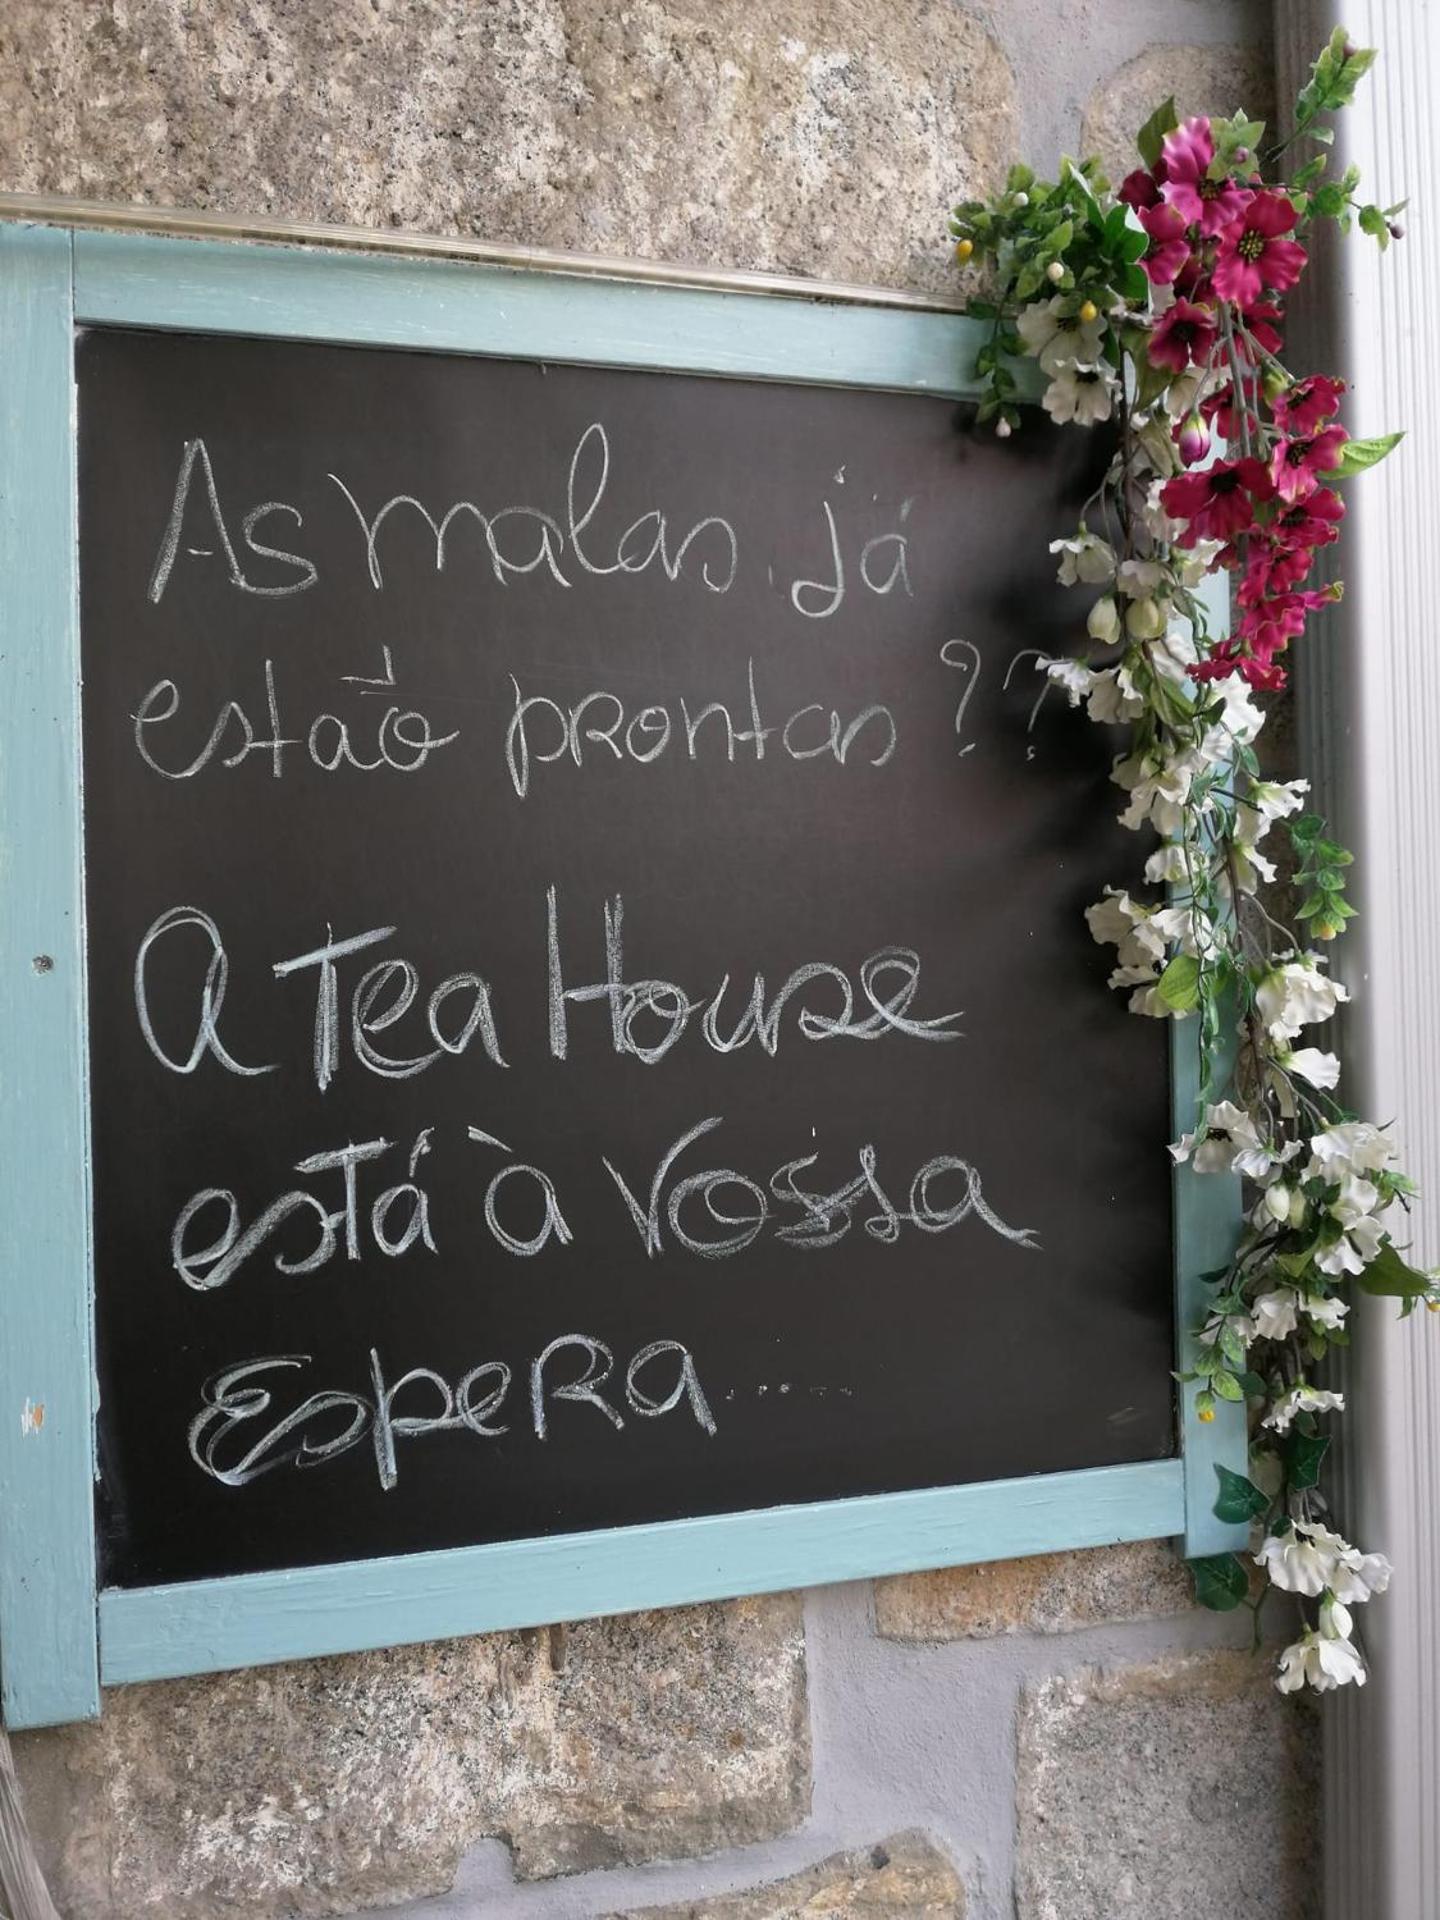 As malas já
estão prontas ??
A Tea House
está à vossa
Espera.......